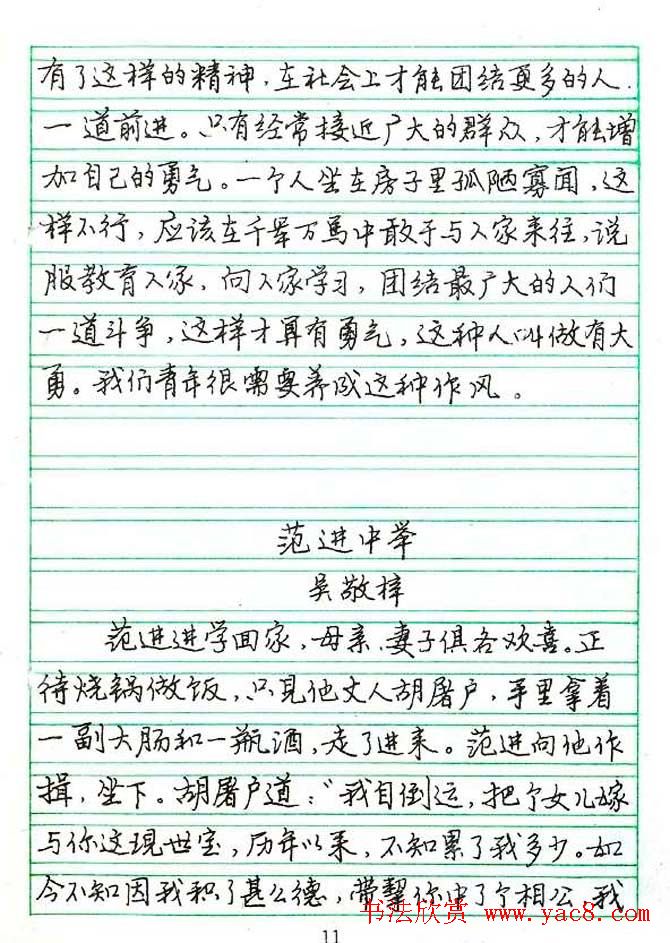 有了这样的精神，在社会上才能团结更多的人，
一道前进。只有经常接近广大的群众，才能增
加自己的勇气。一个人坐在房子里孤陋寡闻，这
样不行，应该在千军万馬中敢于与人家来往，说
服教育人家，向人家学习，团结最广大的人们
一道斗争，这样才算有勇气，这种人叫做有大
勇。我们青年很需要养成这种作风。
范进中举
吴敬梓
范进进学回家，母亲、妻子俱各欢喜。正
待烧锅做饭，只见他丈人胡屠户，手里拿着
一副大肠和一瓶酒，走了进来。范进向他作
揖，坐下。胡屠户道：“我自倒运，把个女儿嫁
与你这现世宝，历年以来，不知累了我多少。如
今不知因我积了甚么德，带挈你中了个相公，我
书法欣赏 www.yac8.com
11